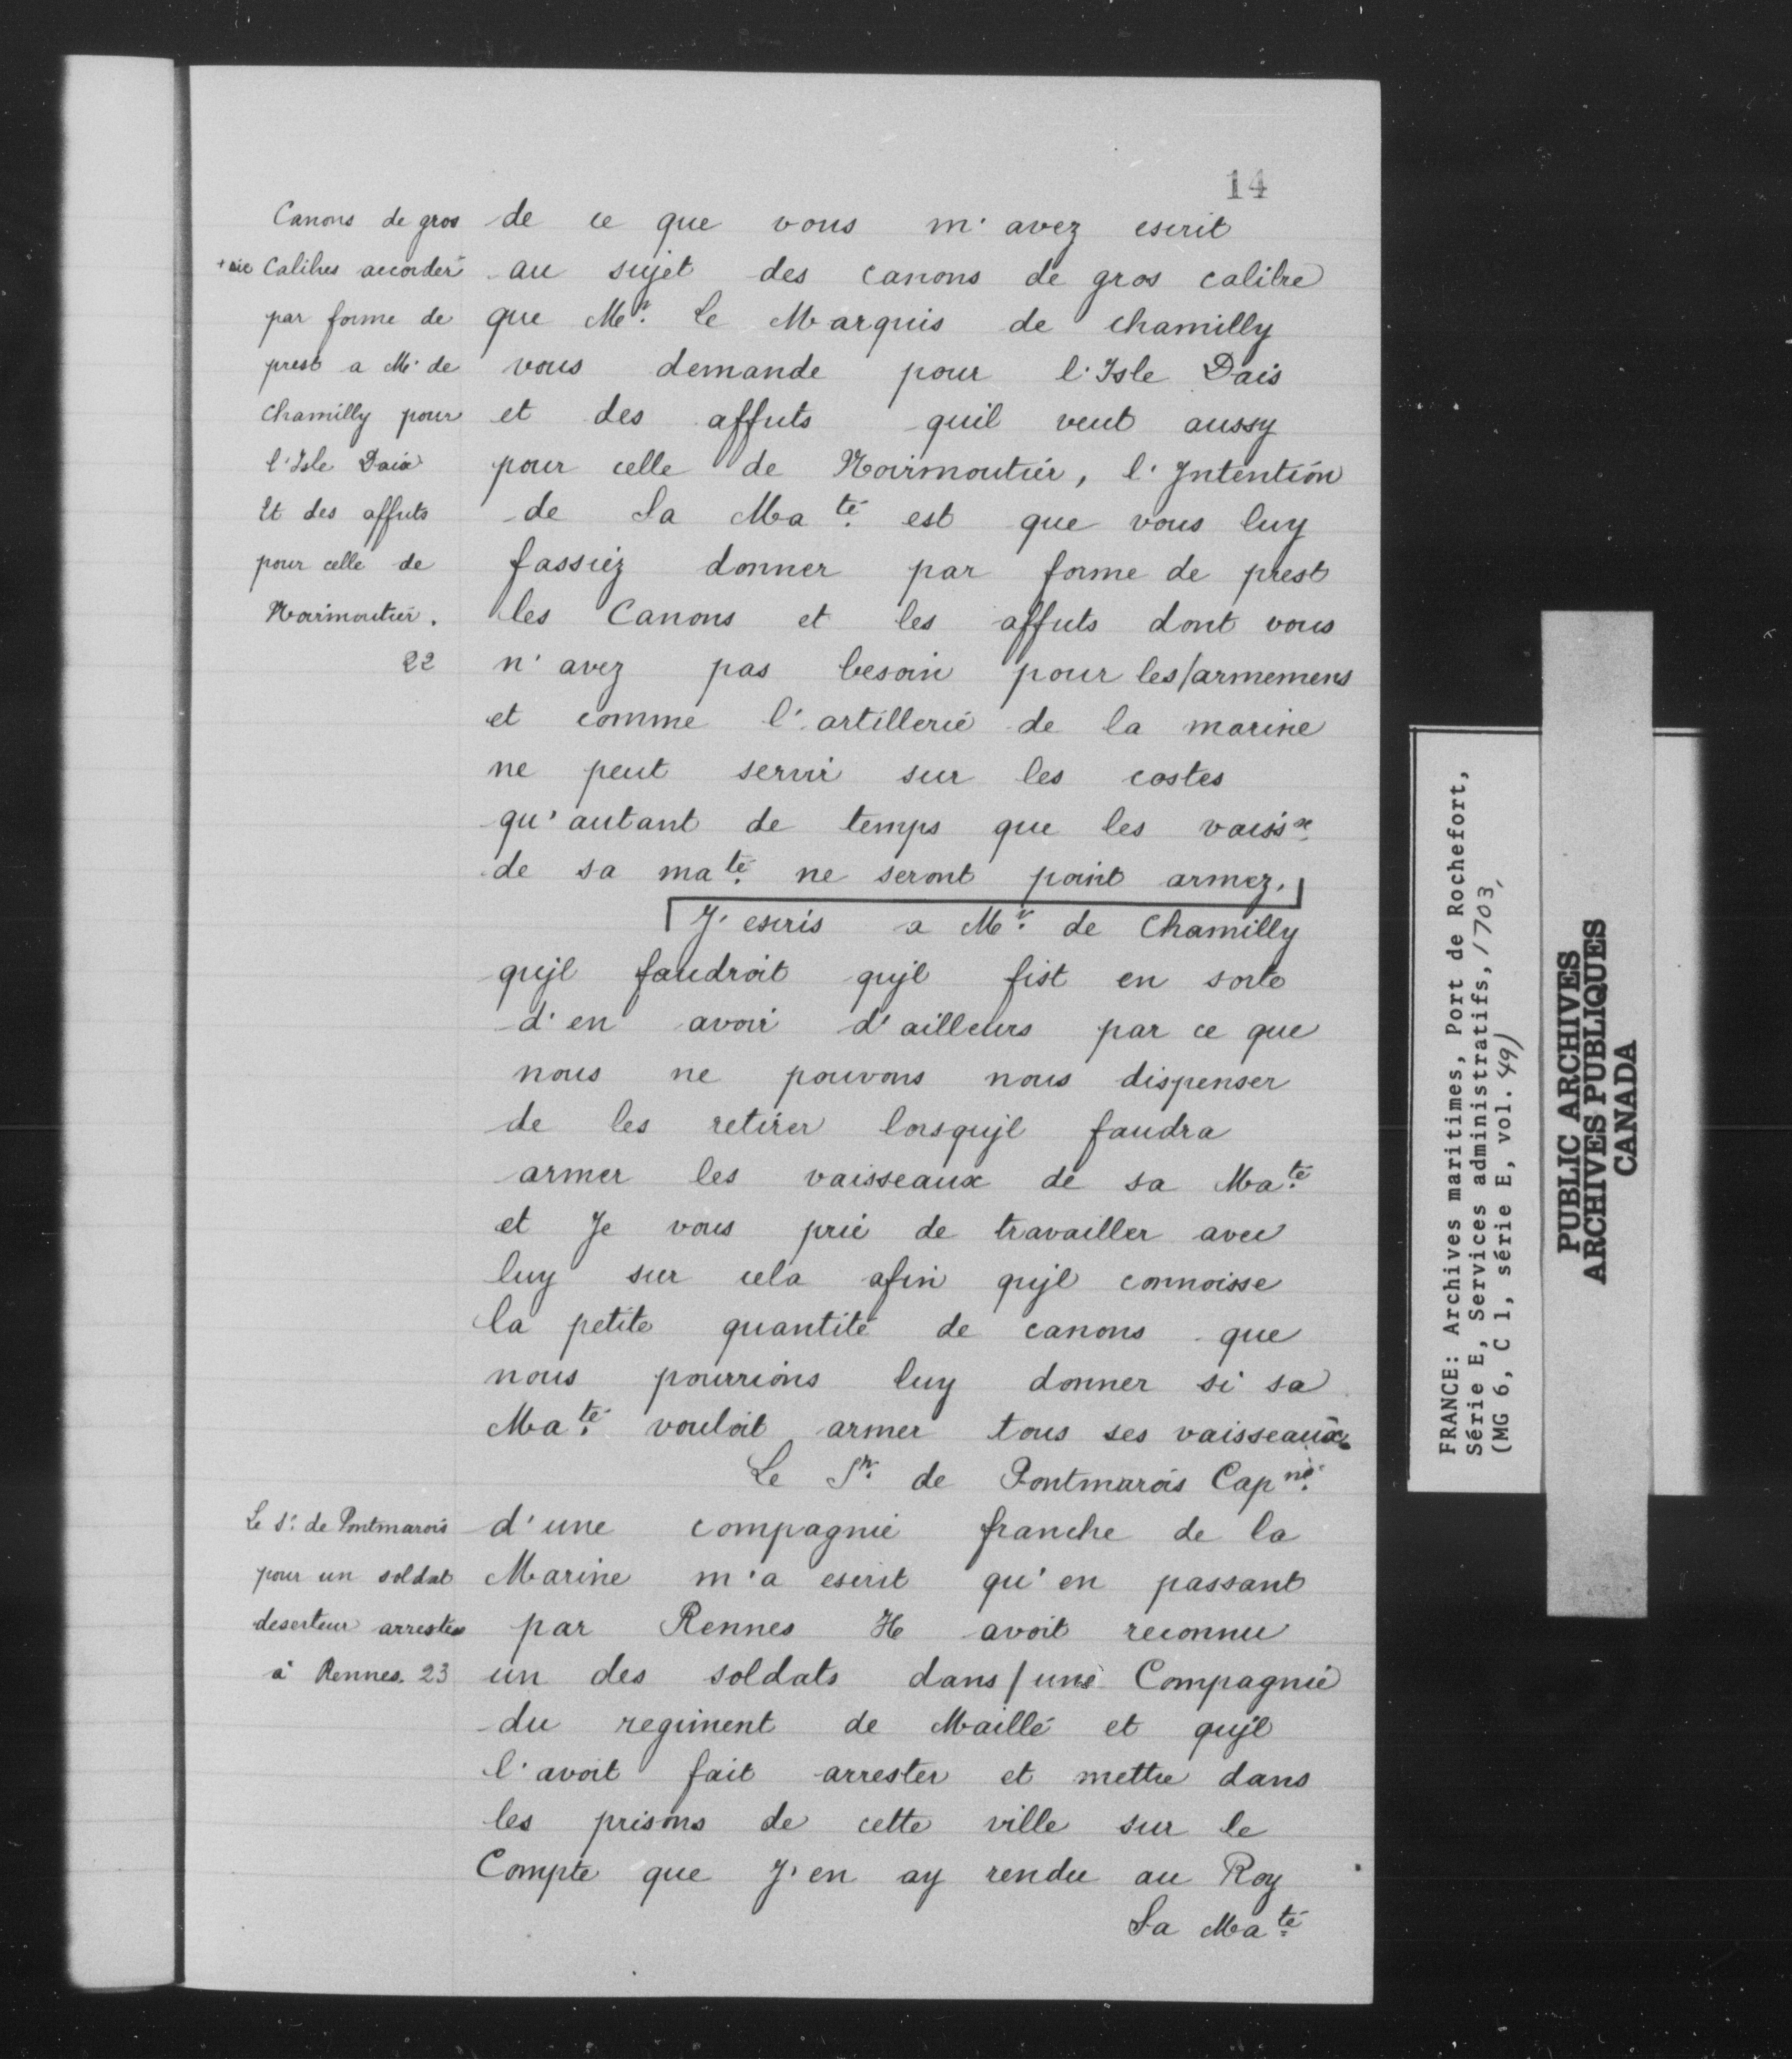 14
Canons de gros
+ sic Calibres accordés
par forme de
prest a Mr. de
Chamilly pour
l'Isle Daix
Et des affuts
pour celle de
Noirmoutier.
22
de ce que vous m'avez escrit
au sujet des canons de gros calibre
que Mr. Le Marquis de chamilly
vous demande pour l'Isle Dais
et des affuts quil veut aussy
pour celle de Noirmoutier, l'Intention
de Sa Maté. est que vous luy
fassiez donner par forme de prest
les Canons et les affuts dont vous
n'avez pas besoin pour les/armemens
et comme l'artillerie de la marine
ne peut servir sur les costes
qu'autant de temps que les vaissx.
de sa maté. ne seront point armez.
J'escris a Mr. de Chamilly
qujl faudroit qujl fist en sorte
d'en avoir d'ailleurs par ce que
nous ne pouvons nous dispenser
de les retirer lorsqujl faudra
armer les vaisseaux de sa Maté.
et Je vous prie de travailler avec
luy sur cela afin qujl connoisse
la petite quantité de canons que
nous pourrions luy donner si sa
Maté. vouloit armer tous ses vaisseaux.
Le Sr. de Pontmarois Capne.
Le Sr. de Pontmarois
pour un soldat
deserteur arresté
à Rennes. 23
d'une compagnie franche de la
Marine m'a escrit qu'en passant
par Rennes Il avoit reconnu
un des soldats dans/une Compagnie
du regiment de Maillé et qujl
l'avoit fait arrester et mettre dans
les prisons de cette ville sur le
Compte que J'en ay rendu au Roy
Sa Maté.
FRANCE: Archives maritimes, Port de Rochefort,
Série E, Services administratifs, 1703,
(MG 6, C 1, série E, vol. 49)
PUBLIC ARCHIVES
ARCHIVES PUBLIQUES
CANADA